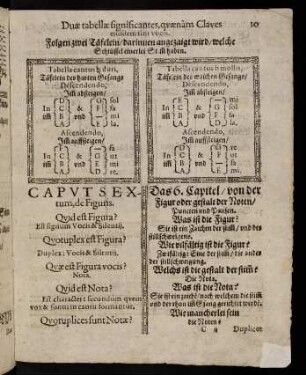 Duæ tabellæ significantes, quænàm Claves
20
eiusdem sint vocis.
Folgen zwei Täfelein / darinnen angezaigt wird / welche
Schlüssel einerlei Stim haben.
Tabella cantus ♮ duri,
Täfelein des harten Gesangs
Descendendo,
Im absteigen /
In
ist
&
und
sol
fa
mi
la
Ascendendo,
Im auffsteigen /
In
ist
&
und
Tabella cantus b mollis,
Täfelein des weichen Gesangs /
Descendendo,
Im absteigen /
In
ist
&
und
Ascendendo,
Im auffsteigen /
In
ist
&
und
CAPVT SEX-
tum, de Figuris.
Quid est Figura?
Est signum vocis & silentij.
Quotuplex est Figura?
Duplex: Vocis & silentij.
Quæ est Figura vocis?
Nota.
Quid est Nota?
Est character: secundùm quem
vox & sonus in cantu formantur.
Quotuplices sunt Notæ?
Das 6. Capitel / von der
Figur oder gestalt der Noten /
Puncten und Pausen.
Was ist die Figur?
Sie ist ein Zaichen der stimm / und des
stillschweigens.
Wie vilfältig ist die Figur?
Zwifältig: Eine der stimm / die ander
der stillschweigung.
Welchs ist die gestalt der stimm?
Die Nota.
Was ist die Nota?
Sie ist ein zaichē / nach welchem die stimm
und der thon im Gsang gerichtet wurdt.
Wie mancherlei sein
die Noten?
C 2
Duplices